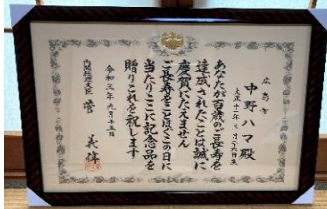 広島市
中野ハマ殿
あなたが百歳のご長寿を
達成されたことは誠に
慶賀にたえません
ご長寿をことほぐこの日に
当たりここに記念品を
贈りこれを祝します
令和三年九月十五日
内閣総理大臣 菅 義偉